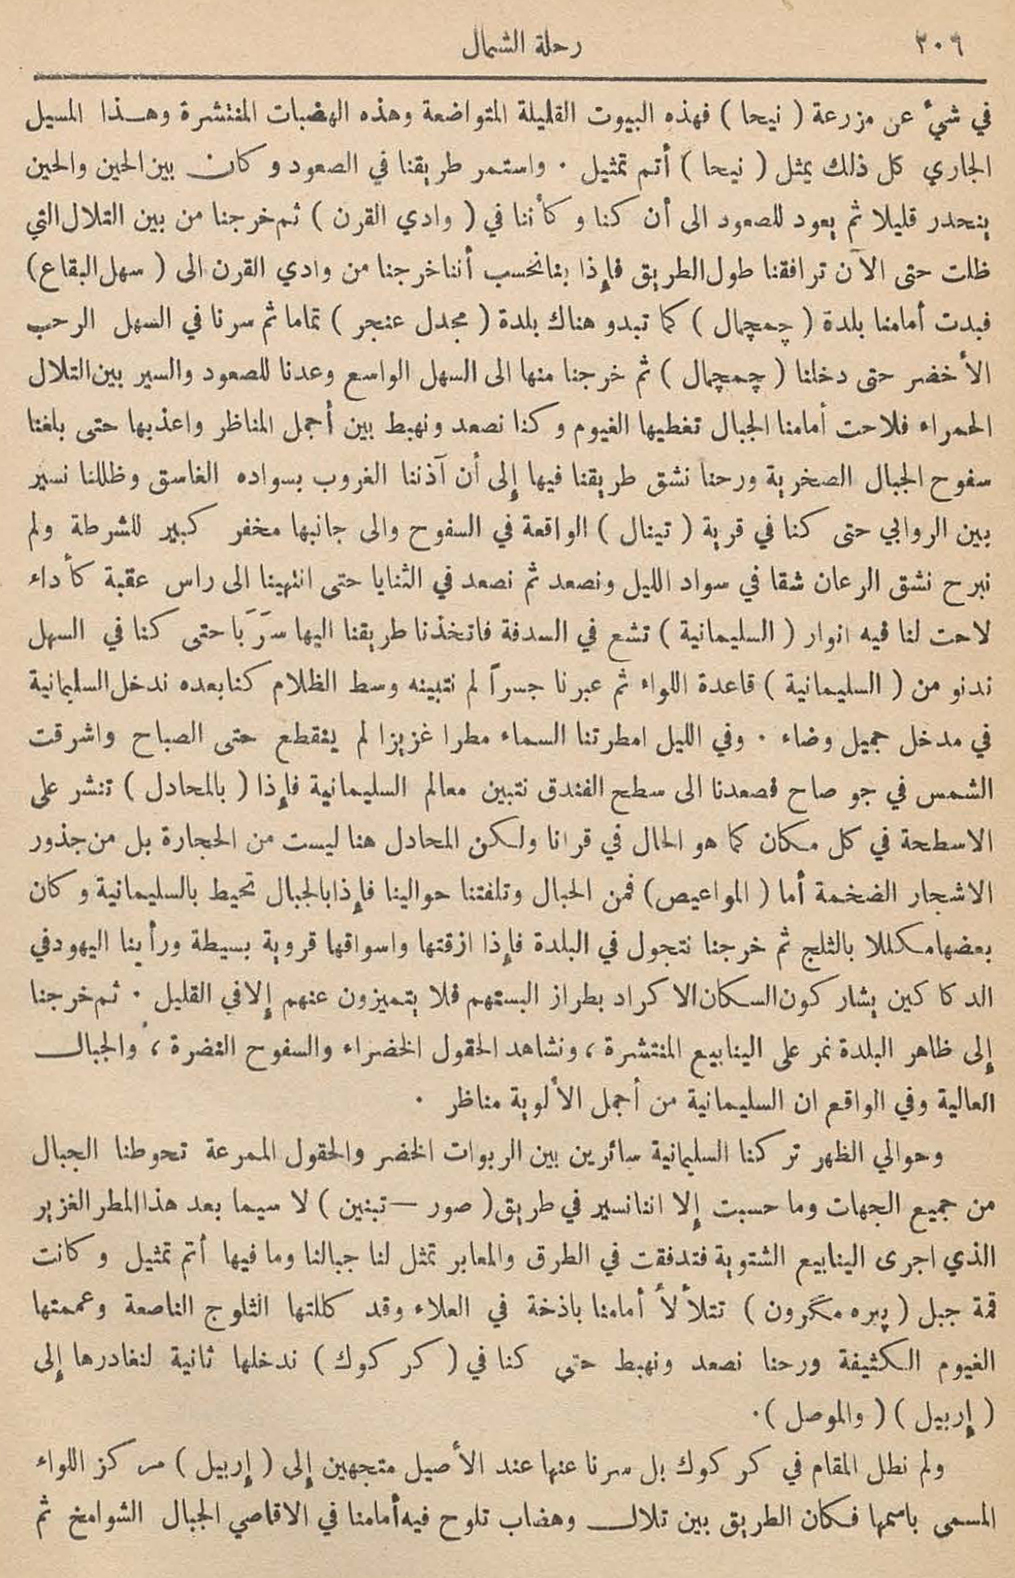 ٣٠٦ رحلة الشمال
في شيء عن مزرعة ( نيحا ) فهذه البيوت القليلة المتواضعة وهذه الهضبات المنتشرة وهذا المسيل
الجاري كل ذلك يمثل ( نيحا ) أتم تمثيل . واستمر طريقنا في الصعود وكان بين الحين والحين
ينحدر قليلا ثم يعود للصعود الى أن كنا وكأننا في ( وادي القرن ) ثم خرجنا من بين التلال التي
ظلت حتى الآن ترافقنا طول الطريق فإذا بنا نحسب أننا خرجنا من وادي القرن الى ( سهل البقاع )
فبدت أمامنا بلدة ( چمچمال ) كما تبدو هناك بلدة ( مجدل عنجر ) تماما ثم سرنا في السهل الرحب
الأخضر حتى دخلنا ( چمچمال ) ثم خرجنا منها الى السهل الواسع وعدنا للصعود والسير بين التلال
الحمراء فلاحت أمامنا الجبال تغطيها الغيوم وكنا نصعد ونهبط بين أجمل المناظر واعذبها حتى بلغنا
سفوح الجبال الصخرية ورحنا نشق طريقنا فيها إلى أن آذننا الغروب بسواده الغاسق وظللنا نسير
بين الروابي حتى كنا في قرية ( تينال ) الواقعة في السفوح والى جانبها مخفر كبير للشرطة ولم
نبرح نشق الرعان شقا في سواد الليل ونصعد ثم نصعد في الثنايا حتى انتهينا الى راس عقبة كأداء
لاحت لنا فيه انوار ( السليمانية ) تشع في السدفة فاتخذنا طريقنا اليها سَرَبا حتى كنا في السهل
ندنو من ( السليمانية ) قاعدة اللواء ثم عبرنا جسراً لم نتبينه وسط الظلام كنا بعده ندخل السليمانية
في مدخل جميل وضاء . وفي الليل امطرتنا السماء مطرا غزيزا لم ينقطع حتى الصباح واشرقت
الشمس في جو صاح فصعدنا الى سطح الفندق نتبين معالم السليمانية فإذا ( بالمحادل ) تنشر على
الاسطحة في كل مكان كما هو الحال في قرانا ولكن المحادل هنا ليست من الحجارة بل من جذور
الاشجار الضخمة أما ( المواعيص ) فمن الحبال وتلفتنا حوالينا فإذا بالجبال تحيط بالسليمانية وكان
بعضها مكللا بالثلج ثم خرجنا نتجول في البلدة فإذا ازقتها واسواقها قروية بسيطة ورأينا اليهود في
الدكاكين يشاركون السكان الاكراد بطراز البستهم فلا يتميزون عنهم إلا في القليل . ثم خرجنا
إلى ظاهر البلدة نمر على الينابيع المنتشرة ، ونشاهد الحقول الخضراء والسفوح النضرة ، والجبال
العالية وفي الواقع ان السليمانية من أجمل الألوية مناظر .
وحوالي الظهر تركنا السليمانية سائرين بين الربوات الخضر والحقول الممرعة تحوطنا الجبال
من جميع الجهات وما حسبت إلا اننا نسير في طريق ( صور — تبنين ) لا سيما بعد هذا المطر الغزير
الذي اجرى الينابيع الشتوية فتدفقت في الطرق والمعابر تمثل لنا جبالنا وما فيها أتم تمثيل وكانت
قمة جبل ( پيره مگرون ) تتلألأ أمامنا باذخة في العلاء وقد كللتها الثلوج الناصعة وعممتها
الغيوم الكثيفة ورحنا نصعد ونهبط حتى كنا في ( كركوك ) ندخلها ثانية لنغادرها إلى
( إربيل ) ( والموصل ) .
ولم نطل المقام في كركوك بل سرنا عنها عند الأصيل متجهين إلى ( إربيل ) مركز اللواء
المسمى باسمها فكان الطريق بين تلال وهضاب تلوح فيه أمامنا في الاقاصي الجبال الشوامخ ثم